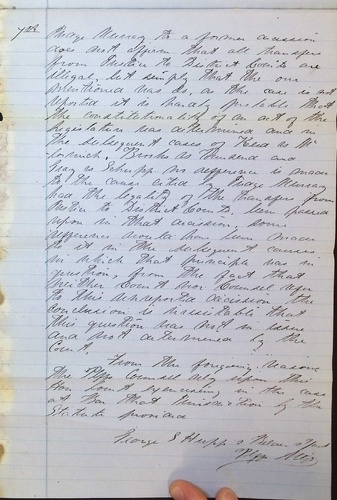 Judge Murray to a former decision
does not affirm that all transfers
from Justice to District Courts are
illegal, but simply that the one
mentioned was so, as the case is not
reported it is hardly probable that
the constitutionality of an act of the
Legislature was determined and in
the subsequent cases of
Brooks vs
vs no difference is made
to the cause cited by Judge Murray
had the legality of the transfers from
Justice to District Courts been passed
upon in that decision, some
reference would have been made
to it in the subsequent causes
in which that principle was in
question, from the fact that
neither Court nor Counsel refer
to this unreported decision, the
conclusion is irresistable that
this question was not in issue
and not determined by the
Court.
From the foregoing reasons
the Plffs Counsel rely upon this
Hon Court sustaining in the case
at Bar that Jurisdiction by the
Statute provided
George E
Plffs Attys